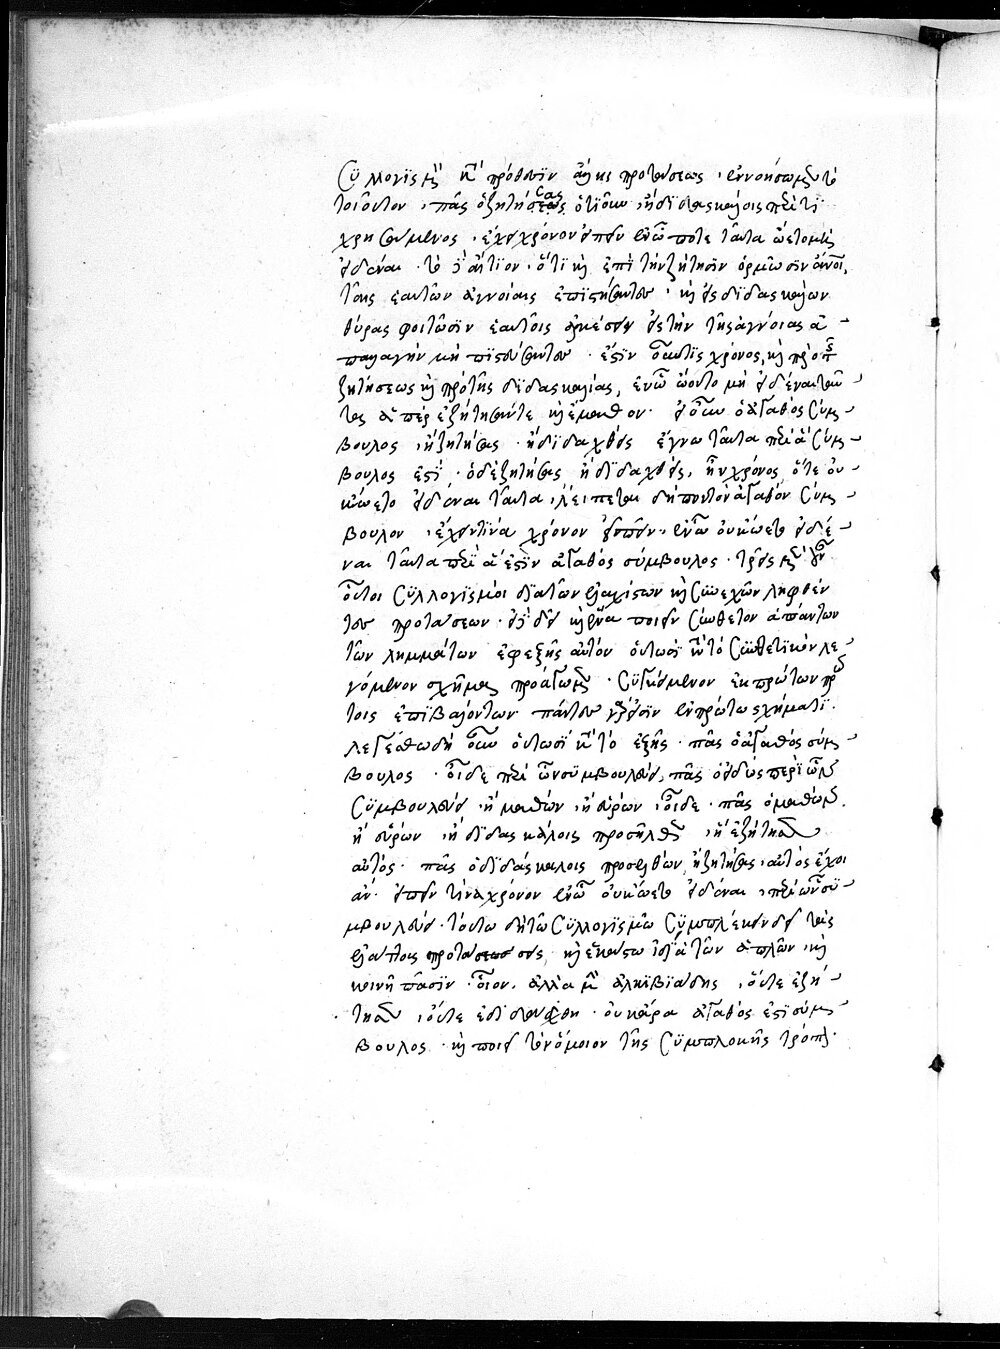 συλλογισμὸν κατὰ πρόθεσιν ἄλλης προτάσεως · ἐννοήσωμεν τὸ
τοιοῦτον · πᾶς ὁ ζητήσας ὁτιοῦν, ἢ διδασκάλοις περί τι
χρησάμενος · ἔχει χρόνον εἰπεῖν ἐν ᾧ ποτε ταῦτα ᾤετο μὴ
εἰδέναι · τὸ δὲ αἴτιον · ὅτι καὶ ἐπὶ τὴν ζήτησιν ὁρμῶσιν ἄνθρωποι,
ταῖς ἑαυτῶν ἀγνοίαις ἐπιστήσαντες · καὶ εἰς διδασκάλων
θύρας φοιτῶσιν ἑαυτοῖς ἀρκέσειν εἰς τὴν τῆς ἀγνοίας ἀ
παλλαγὴν μὴ πιστεύσαντες · ἔστιν οὖν τις χρόνος καὶ πρὸ τῆς
ζητήσεως καὶ πρὸ τῆς διδασκαλίας, ἐν ᾧ ᾤοντο μὴ εἰδέναι ταῦ
τα ἅπερ ἐζήτησάν τε καὶ ἔμαθον · εἰ οὖν ὁ ἀγαθὸς σύμ
βουλος ἢ ζητήσας · ἢ διδαχθεὶς ἔγνω ταῦτα περὶ ἃ σύμ
βουλος ἐστί · ὁ δὲ ζητήσας ἢ διδαχθείς, ἦν χρόνος ὅτε οὐ
κ ᾤετο εἰδέναι ταῦτα · λείπεται δήπου τὸν ἀγαθὸν σύμ
βουλον · ἔχειν τινὰ χρόνον εἰπεῖν · ἐν ᾧ οὐκ ᾤετο εἰδέ
ναι ταῦτα περὶ ἅ ἐστιν ἀγαθὸς σύμβουλος · τρεῖς μὲν οὖν
οὗτοι συλλογισμοὶ διὰ τῶν ἐλαχίστων καὶ συνεχῶν ληφθέν
των προτάσεων · εἰ δὲ δεῖ καὶ ἕνα ποιεῖν σύνθετον ἁπάντων
τῶν λημμάτων ἐφεξῆς αὐτὸν οὑτωσὶ κατὰ τὸ συνθετικὸν λε
γόμενον σχῆμα προάγωμεν · συγκείμενον ἐκ πρώτων
τοῖς ἐπιβάλλοντων πάντων ἐν πρώτῳ σχήματι ·
λεγέσθω δὴ οὖν οὑτωσὶ κατὰ τὸ ἑξῆς · πᾶς ὁ ἀγαθὸς σύμ
βουλος · οἶδε περὶ ὧν συμβουλεύει, πᾶς ὁ εἰδὼς περὶ ὧν
συμβουλεύει · ἢ μαθὼν ἢ εὑρὼν οἶδε · πᾶς ὁ μαθὼν
ἢ εὑρὼν ἢ διδασκάλοις προσῆλθεν ἢ ἐζήτησεν
αὐτός · πᾶς ὁ διδασκάλοις προσελθὼν ἢ ζητήσας αὐτὸς ἔχοι
ἂν εἰπεῖν τινα χρόνον ἐν ᾧ οὐκ ᾤετο εἰδέναι περὶ ὧν συ
μβουλεύει · τούτῳ δὴ τῷ συλλογισμῷ συμπλέκειν δεῖ τὰς
ἐλάττους προτάσεις καὶ ἑκάστῳ ἰδίᾳ τῶν ἁπλῶν καὶ
κοινῇ πᾶσιν · οἷον · ἀλλὰ μὴν ἀλκιβιάδης οὔτε ἐζή
τησεν οὔτε ἐδιδάχθη · οὐκ ἄρα ἀγαθός ἐστι σύμ
βουλος · καὶ ποιεῖ τὸν ὅμοιον τῆς συμπλοκῆς τρόπον ·